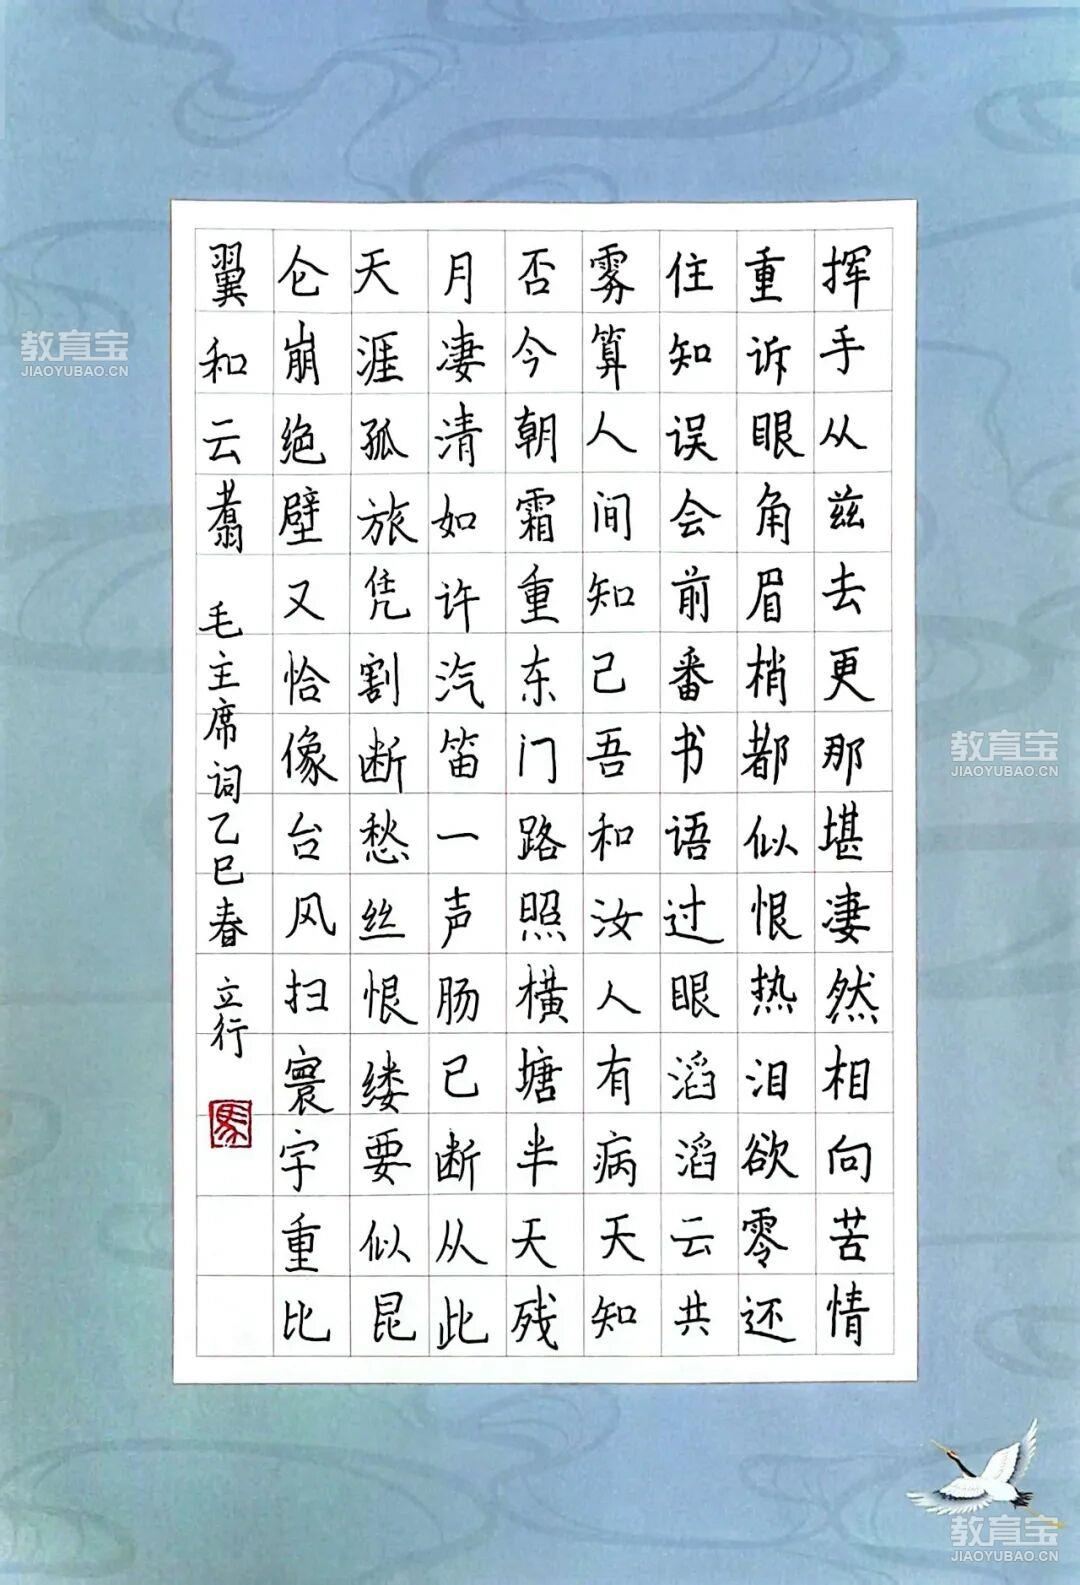 挥手从兹去更那堪凄然相向苦情
重诉眼角眉梢都似恨热泪欲零还
住知误会前番书语过眼滔滔云共
雾算人间知己吾和汝人有病天知
否今朝霜重东门路照横塘半天残
月凄清如许汽笛一声肠已断从此
天涯孤旅凭割断愁丝恨缕要似昆
仑崩绝壁又恰像台风扫寰宇重比
翼和云翥 毛主席词乙巳春 立行
教育宝
JIAOYUBAO.CN
教育宝
JIAOYUBAO.CN
教育宝
JIAOYUBAO.CN